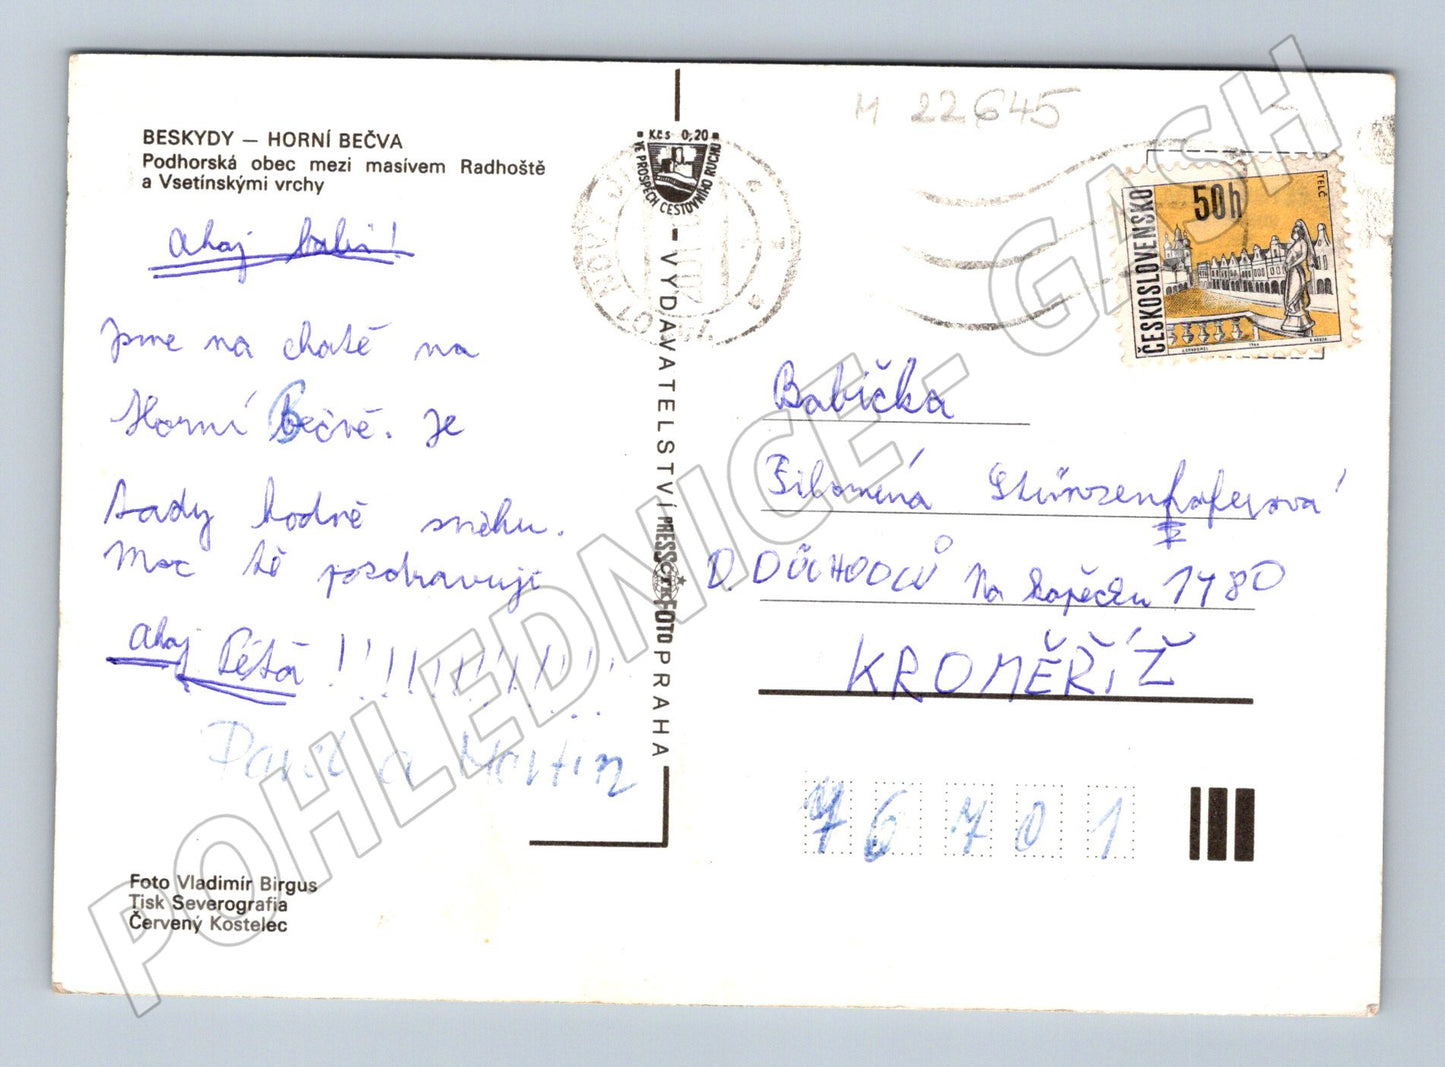 M 22645
BESKYDY – HORNÍ BEČVA
Podhorská obec mezi masívem Radhoště
a Vsetínskými vrchy
Ahoj babi!
Jsme na chatě na
Horní Bečvě. Je
tady hodně sněhu.
Moc tě pozdravují
Ahoj Péťa !!!!!!!!!!!
Pavel a Martin
Foto Vladimír Birgus
Tisk Severografia
Červený Kostelec
Kčs 0,20
VE PROSPĚCH CESTOVNÍHO RUCHU
VYDAVATELSTVÍ PRESSFOTO PRAHA
ČESKOSLOVENSKO
50h
TELČ
Babička
Filoména
D. DŮCHODCŮ Na kopečku 1480
KROMĚŘÍŽ
76701
POHLEDNICE - GASH